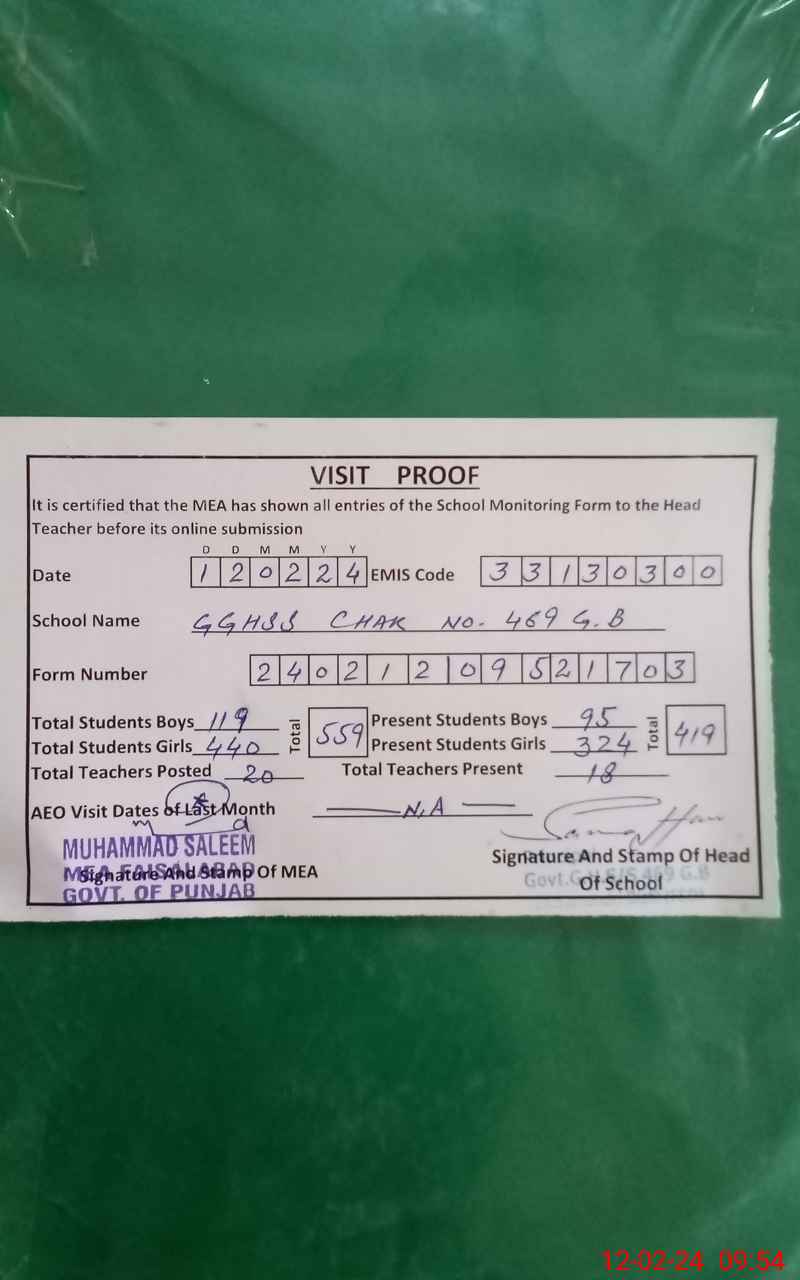 VISIT PROOF
It is certified that the MEA has shown all entries of the School Monitoring Form to the Head
Teacher before its online submission
D D M M Y Y
Date 120224 EMIS Code 33130300
School Name GGHSS CHAK NO. 469 G.B
Form Number 240212109521703
Total Students Boys 119 Total 559 Present Students Boys 95 Total 419
Total Students Girls 440 Present Students Girls 324
Total Teachers Posted 20 Total Teachers Present 18
AEO Visit Dates of Last Month N.A
MUHAMMAD SALEEM
MEA FAISALABAD
Signature And Stamp Of MEA
GOVT. OF PUNJAB
Signature And Stamp Of Head
Of School
12-02-24 09:54